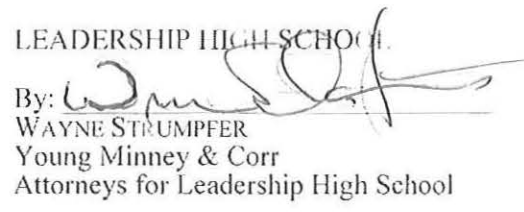 LEADERSHIP HIGH SCHOOL
By:
WAYNE STRUMPFER
Young Minney & Corr
Attorneys for Leadership High School